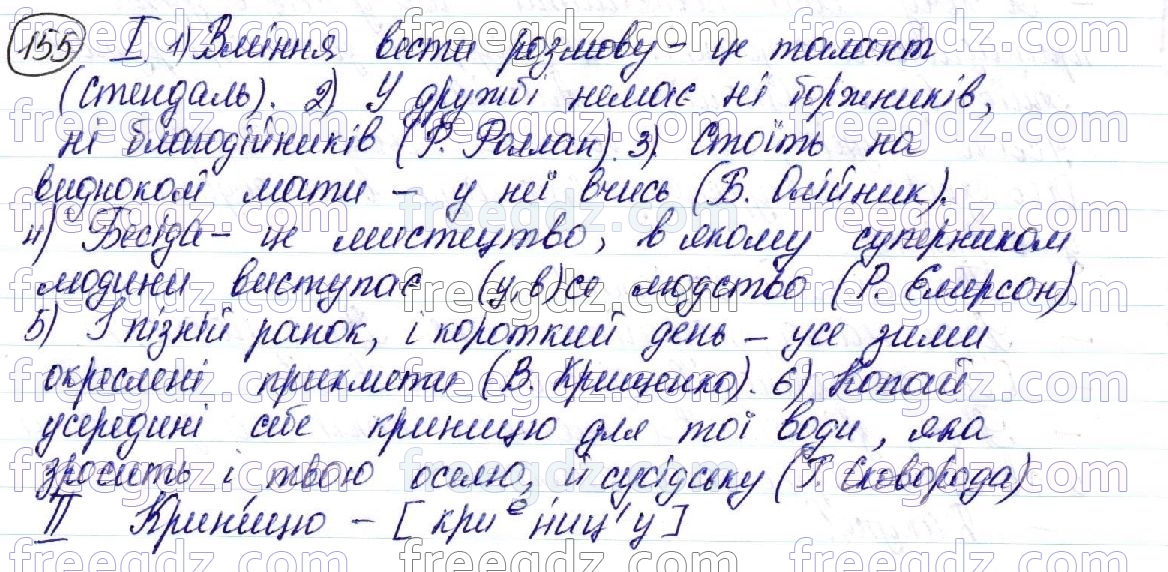 155 I 1) Вміння вести розмову – це талант
(Стендаль). 2) У дружбі немає ні боржників,
ні благодійників (Р. Роллан). 3) Стоїть на
видноколі мати – у неї вчись (Б. Олійник).
4) Бесіда – це мистецтво, в якому суперником
людини виступає (у, в)се людство (Р. Емерсон).
5) І пізній ранок, і короткий день – усе зими
окреслені прикмети (В. Крищенко). 6) Копай
усередині себе криницю для тої води, яка
зросить і твою оселю, й сусідську (Г. Сковорода)
II Криницю – [криᵉниц'у]
freegdz.com